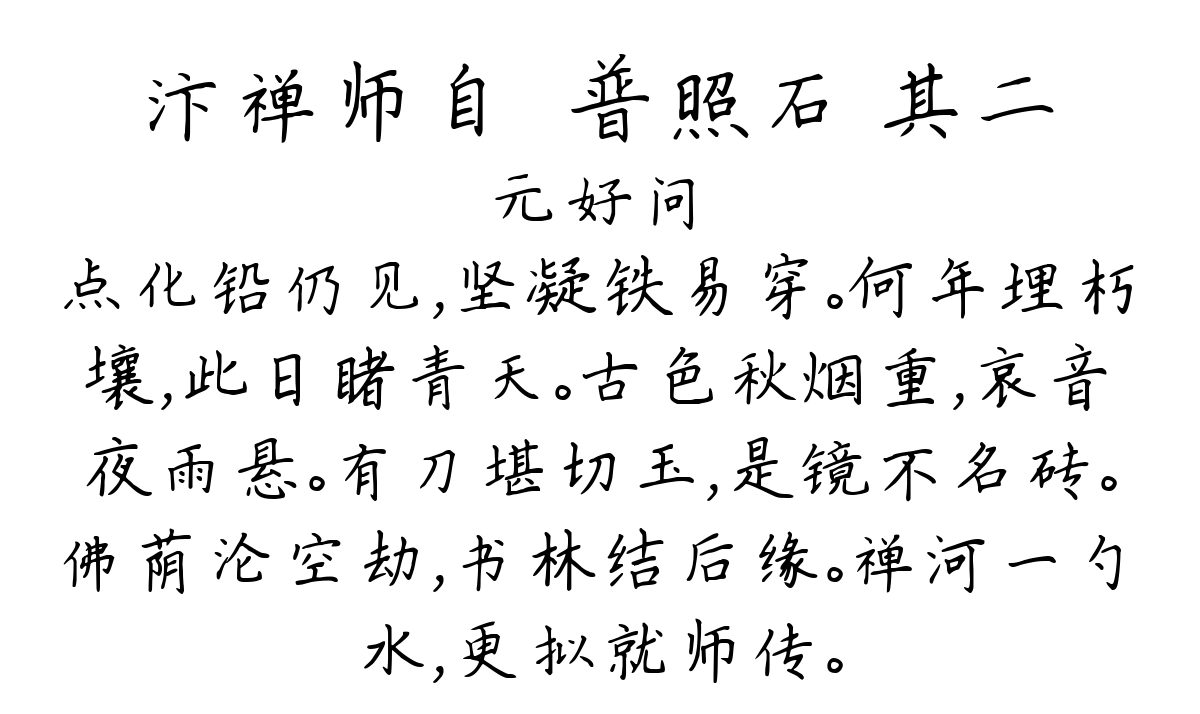 汴禅师自 普照石 其二
元好问
点化铅仍见,坚凝铁易穿。何年埋朽
壤,此日睹青天。古色秋烟重,哀音
夜雨悬。有刀堪切玉,是镜不名砖。
佛荫沦空劫,书林结后缘。禅河一勺
水,更拟就师传。